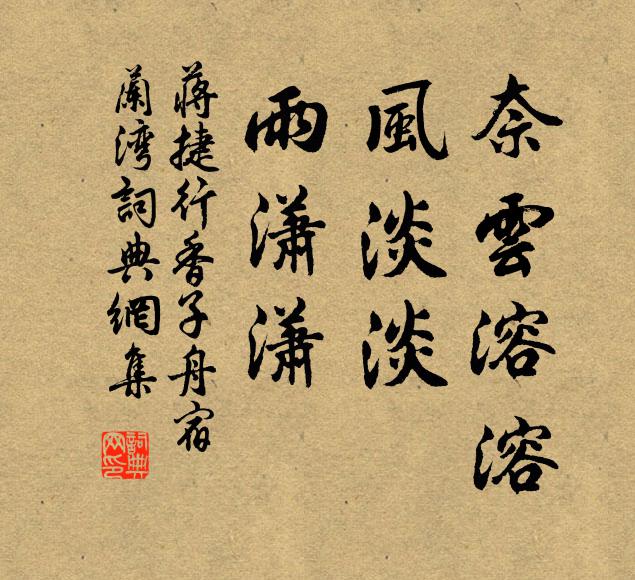 奈雲溶溶
風淡淡
雨瀟瀟
蔣捷行香子舟宿
蘭灣詞典網集
詞典
网印